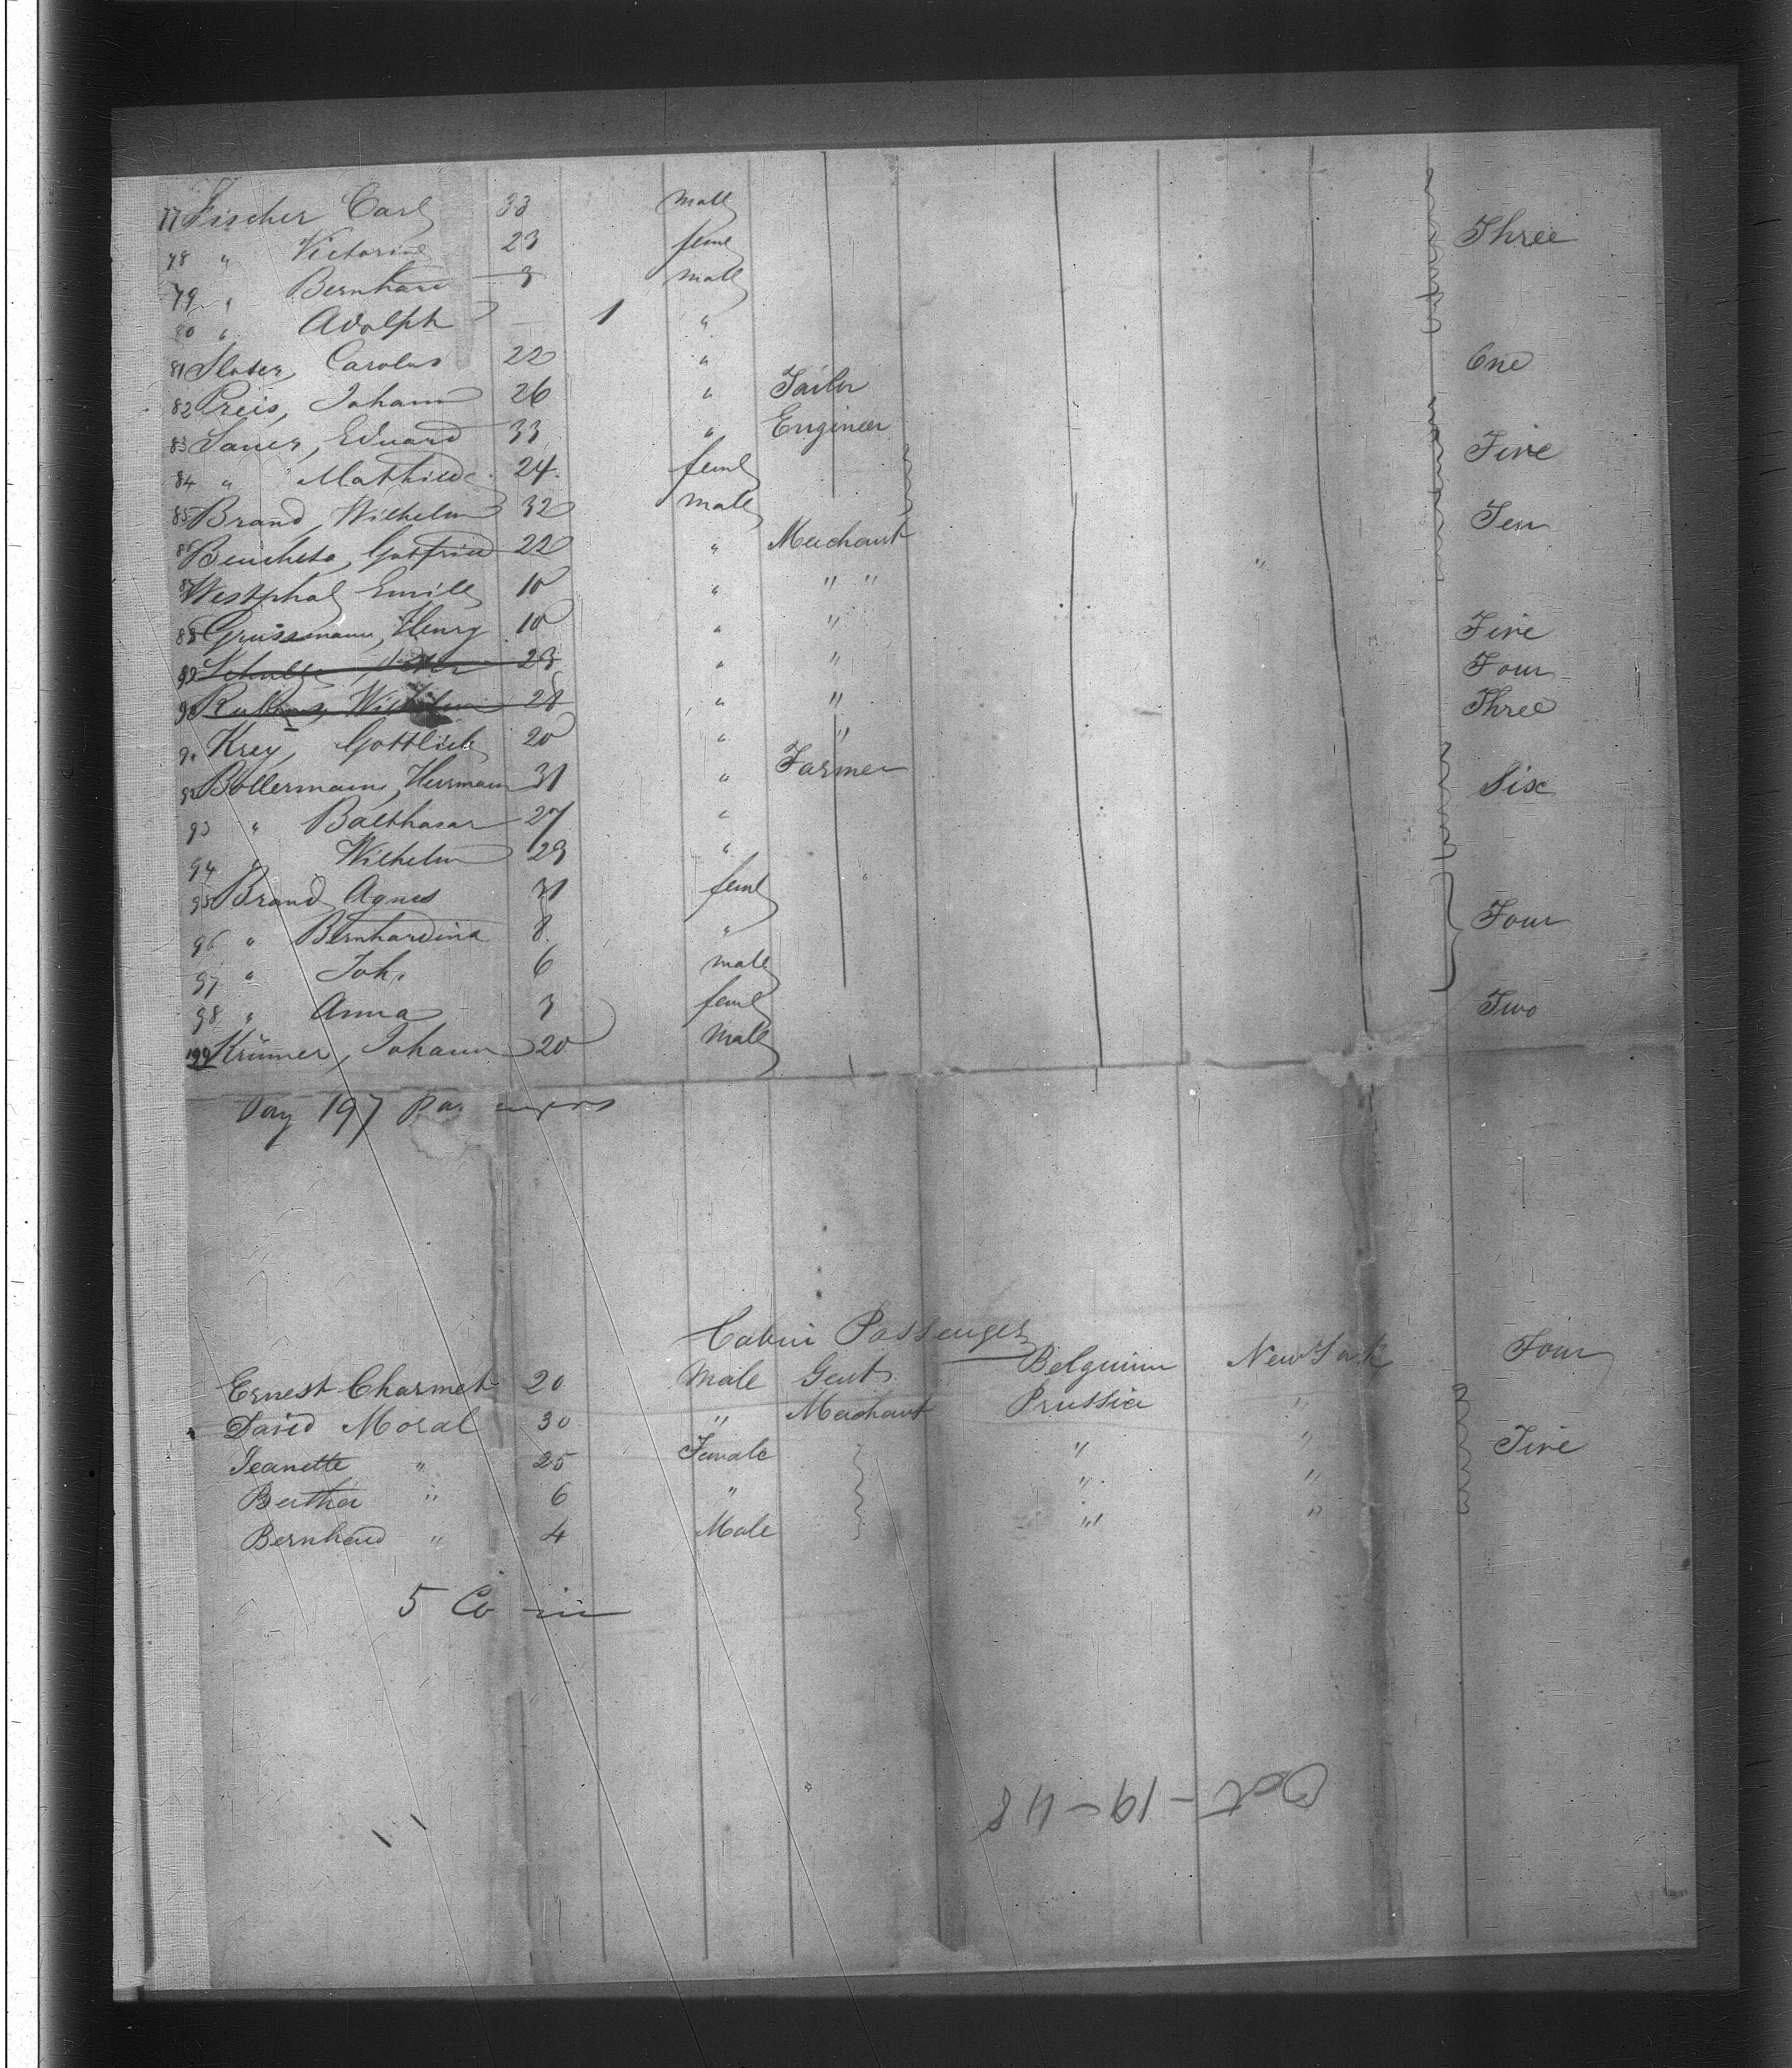 77 Fischer Carl 33 male
78 " Victorine 23 feml Three
79 " Bernhard 3 male
80 " Adolph 1 "
81 Carolus 22 " One
82 Preis, Johann 26 " Tailor
83 Sauer, Eduard 33 " Engineer
84 " Mathilde 24 feml Five
85 Brand, Wilhelm 32 male Ten
86 Gottfried 22 " Merchant
87 Westphal Emill 10 " " " "
88 Grussmann, Henry 10 " " Five
89 Schultze, Peter 23 " " Four
90 Wilhelm 28 " " Three
91 Krey, Gottlieb 20 " "
92 Bollermann, Hermann 31 " Farmer Six
93 " Balthasar 27 "
94 " Wilhelm 29 "
95 Brand Agnes 31 feml
96 " Bernhardina 8 " Four
97 " Joh. 6 male
98 " Anna 3 feml Two
199 Krümer, Johann 20 male
Say 197 passengers
Cabin Passenger
Ernest Charmet 20 Male Gent Belguim New York Four
David Moral 30 " Merchant Prussia "
Jeanette " 25 Female " " Five
Bertha " 6 " " "
Bernhard " 4 Male " "
5 Cabin
Oct - 19 - 48